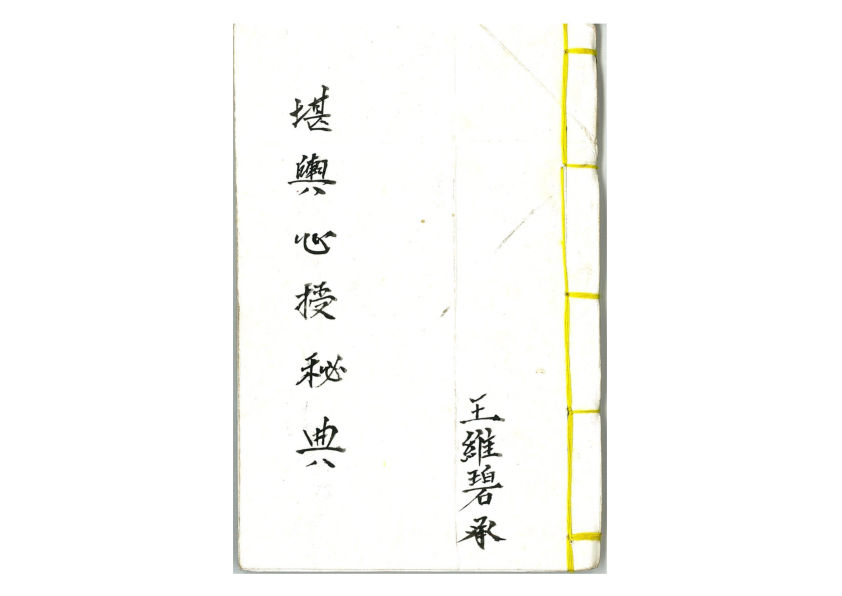 王維碧承
堪輿心授秘典